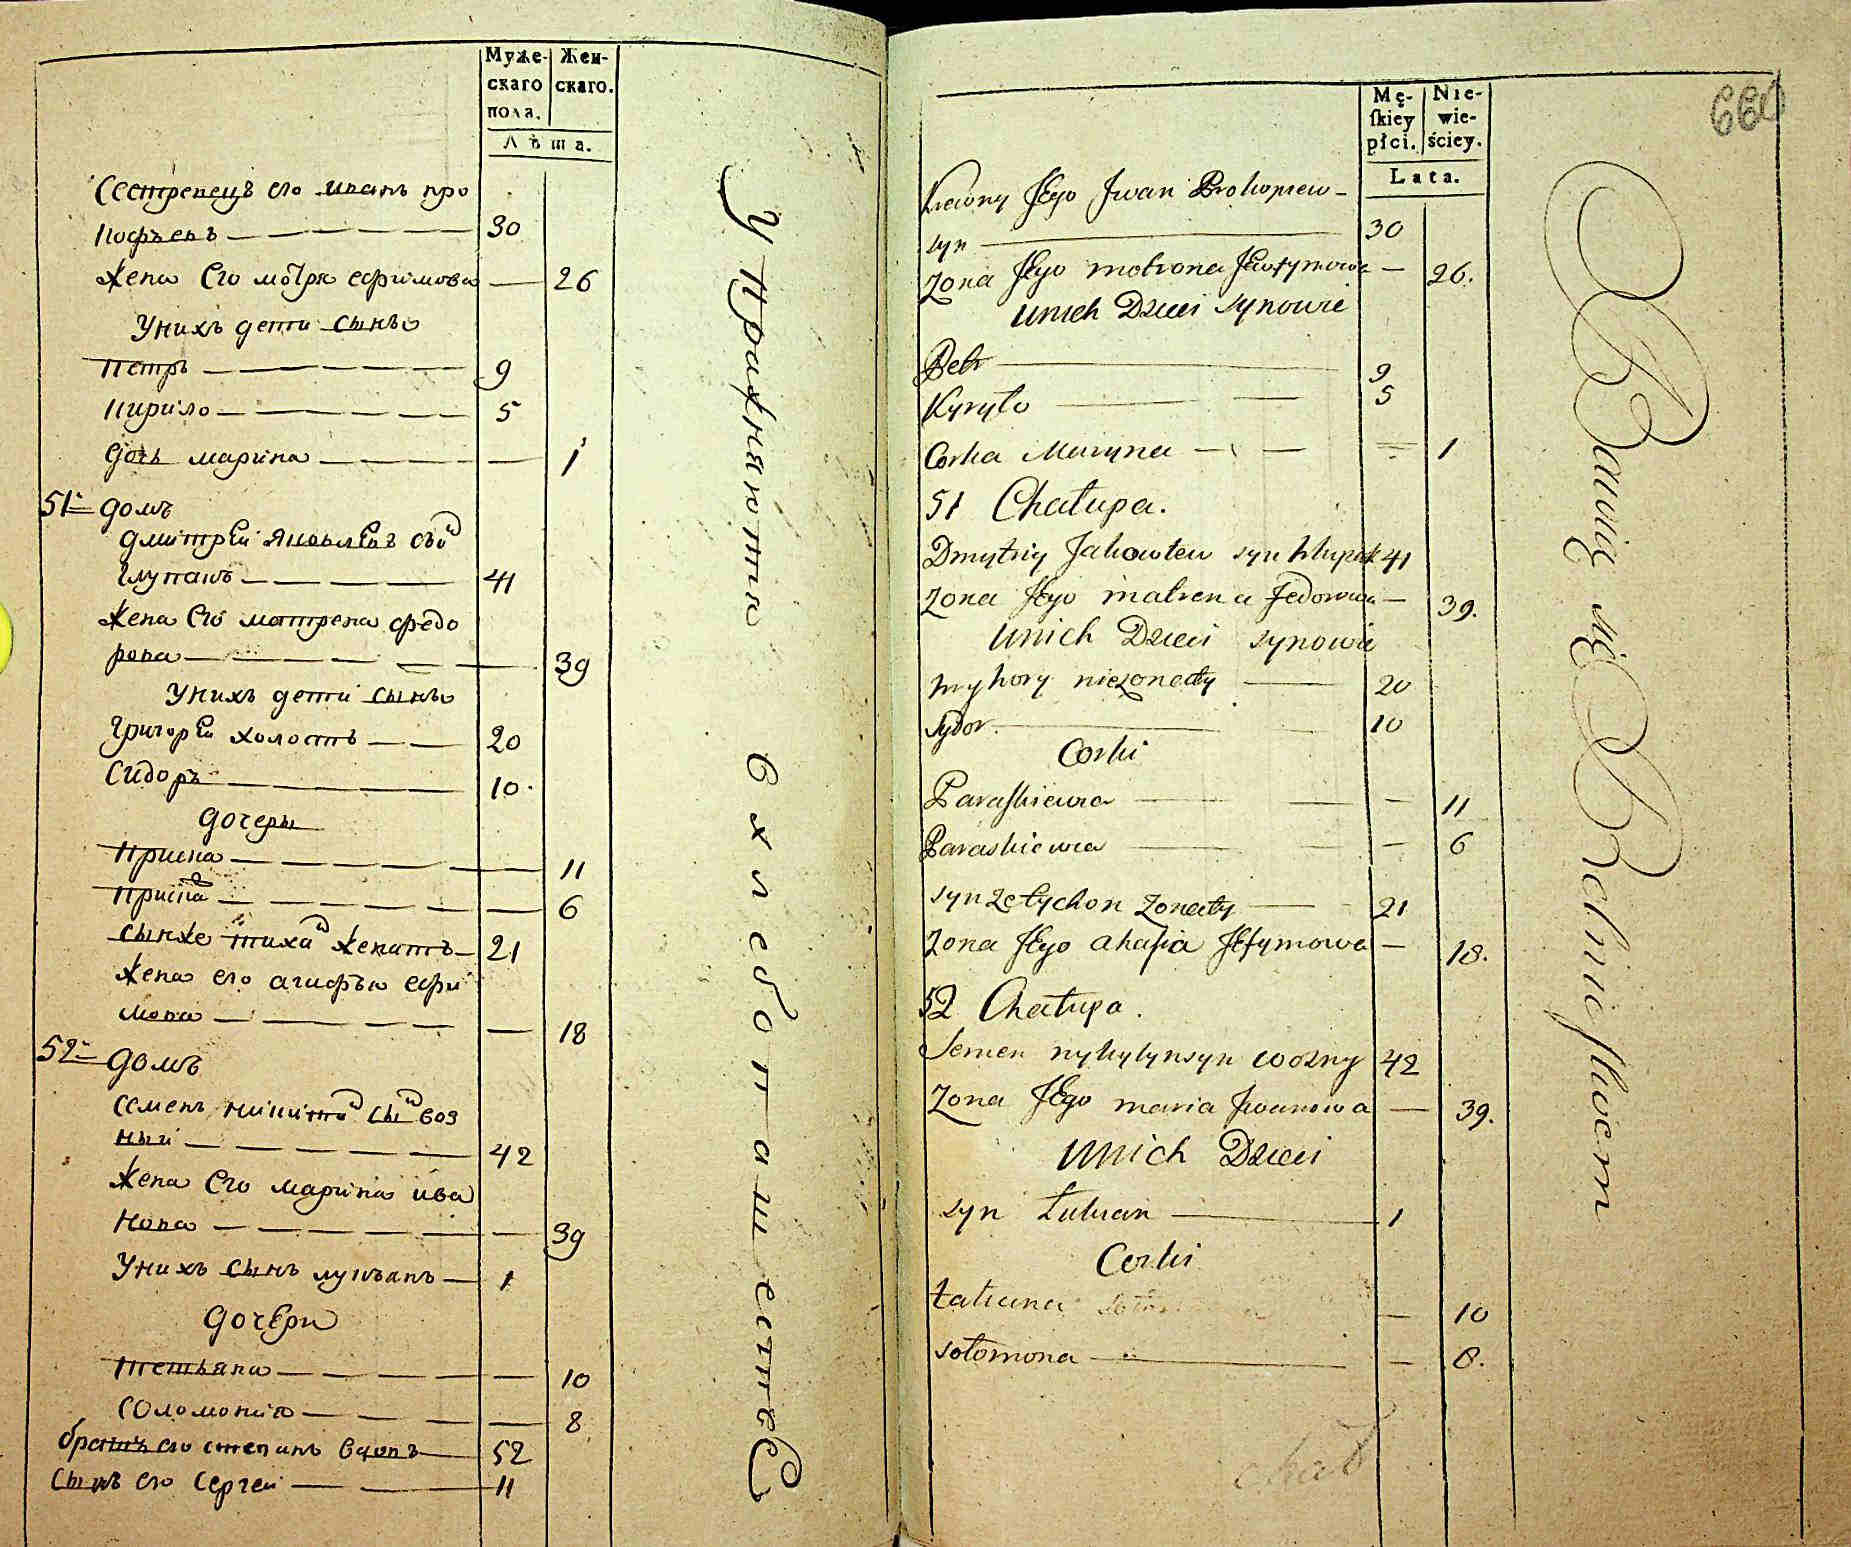 Муже-
скаго
пола.
Жен-
скаго.
Лѣта.
Сестренецъ его иванъ про
кофъевъ 30
жена его мотря ефимова 26
Унихъ дети сынъ
петръ 9
кирило 5
дочь марина 1
51 домъ
дмитрей яковлевъ сый
глупакъ 41
жена его матрена федо
рова 39
Унихъ дети сынъ
григорей холостъ 20
Сидоръ 10
дочеры
Приска 11
Приска 6
сынже тихой женатъ 21
жена его агафъю ефи
мова 18
52 домъ
семенъ никитий сый воз
ный 42
жена его марина ива
нова 39
Унихъ сынъ лукъянъ 1
дочери
тетъяна 10
соломония 8
братъ его степанъ вдовъ 52
сынъ его сергей 11
Упражняются в хлебопашестве
660
Mę-
skiey
płci.
Nie-
wie-
ściey.
Lata.
Krewny Jego Jwan Prokopiew-
syn 30
Zona Jego motrona Jewfymowa 26.
Unich Dzieci synowie
Petr 9
Kyryło 5
Corka Maryna 1
51 Chałupa.
Dmytriy Jakowlew syn hłupak 41
Zona Jego matrena Jedorowa 39.
Unich Dzieci synowie
hryhory niezonaty 20
sydor 10
Corki
Paraskiewia 11
Paraskiewia 6
syn ze tychon Zonaty 21
Zona Jego ahafia Jefymowa 18.
52 Chałupa.
Semen nykytynsyn wozny 42
Zona Jego maria Jwanowa 39.
Unich Dzieci
syn Łukian 1
Corki
tatiana 10
sołomona 8.
Bawią się Rolnictwem